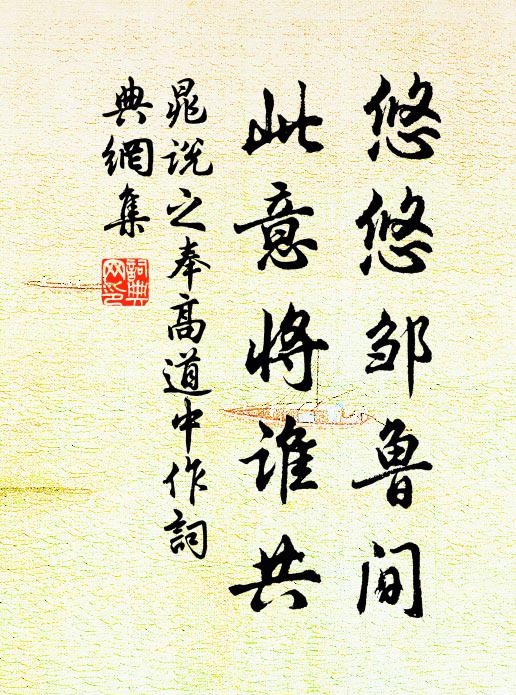 悠悠邹鲁间
此意将谁共
晁说之奉高道中作词
典網集
詞典網印